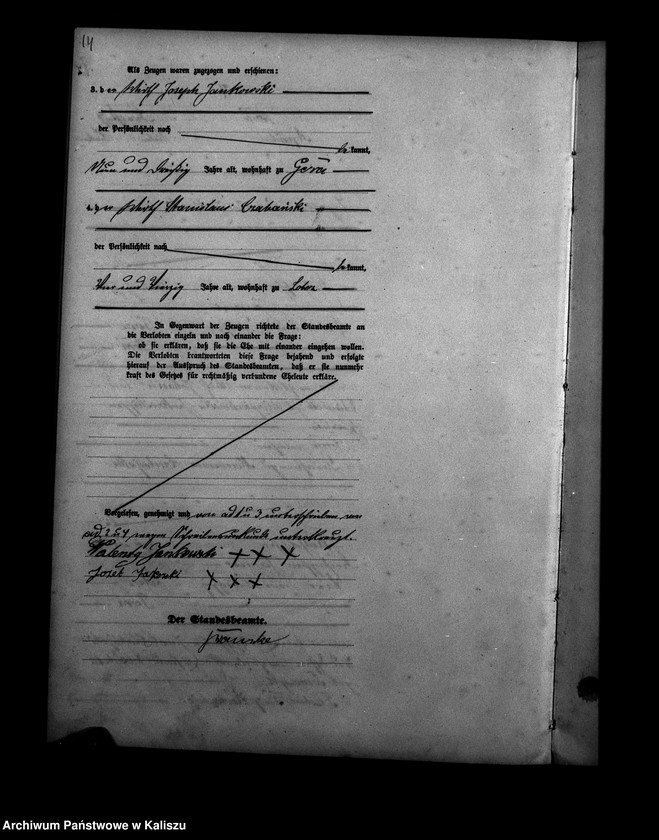 14
Als Zeugen waren zugezogen und erschienen:
3. der Wirth Joseph Jankowski
der Persönlichkeit nach
be kannt,
Neun und dreißig Jahre alt, wohnhaft zu Góra
4. der Wirth Stanislaus
der Persönlichkeit nach
be kannt,
und vierzig Jahre alt, wohnhaft zu
In Gegenwart der Zeugen richtete der Standesbeamte an
die Verlobten einzeln und nach einander die Frage:
ob sie erklären, daß sie die Ehe mit einander eingehen wollen.
Die Verlobten beantworteten diese Frage bejahend und erfolgte
hierauf der Ausspruch des Standesbeamten, daß er sie nunmehr
kraft des Gesetzes für rechtmäßig verbundene Eheleute erkläre.
Vorgelesen, genehmigt und von ad 1 u 3 unterschrieben von
ad. 2 u 4 wegen Schreibensunkunde unterkreuzt.
Walenty Jankowski + + ×
Józef × × +
Der Standesbeamte.
Archiwum Państwowe w Kaliszu